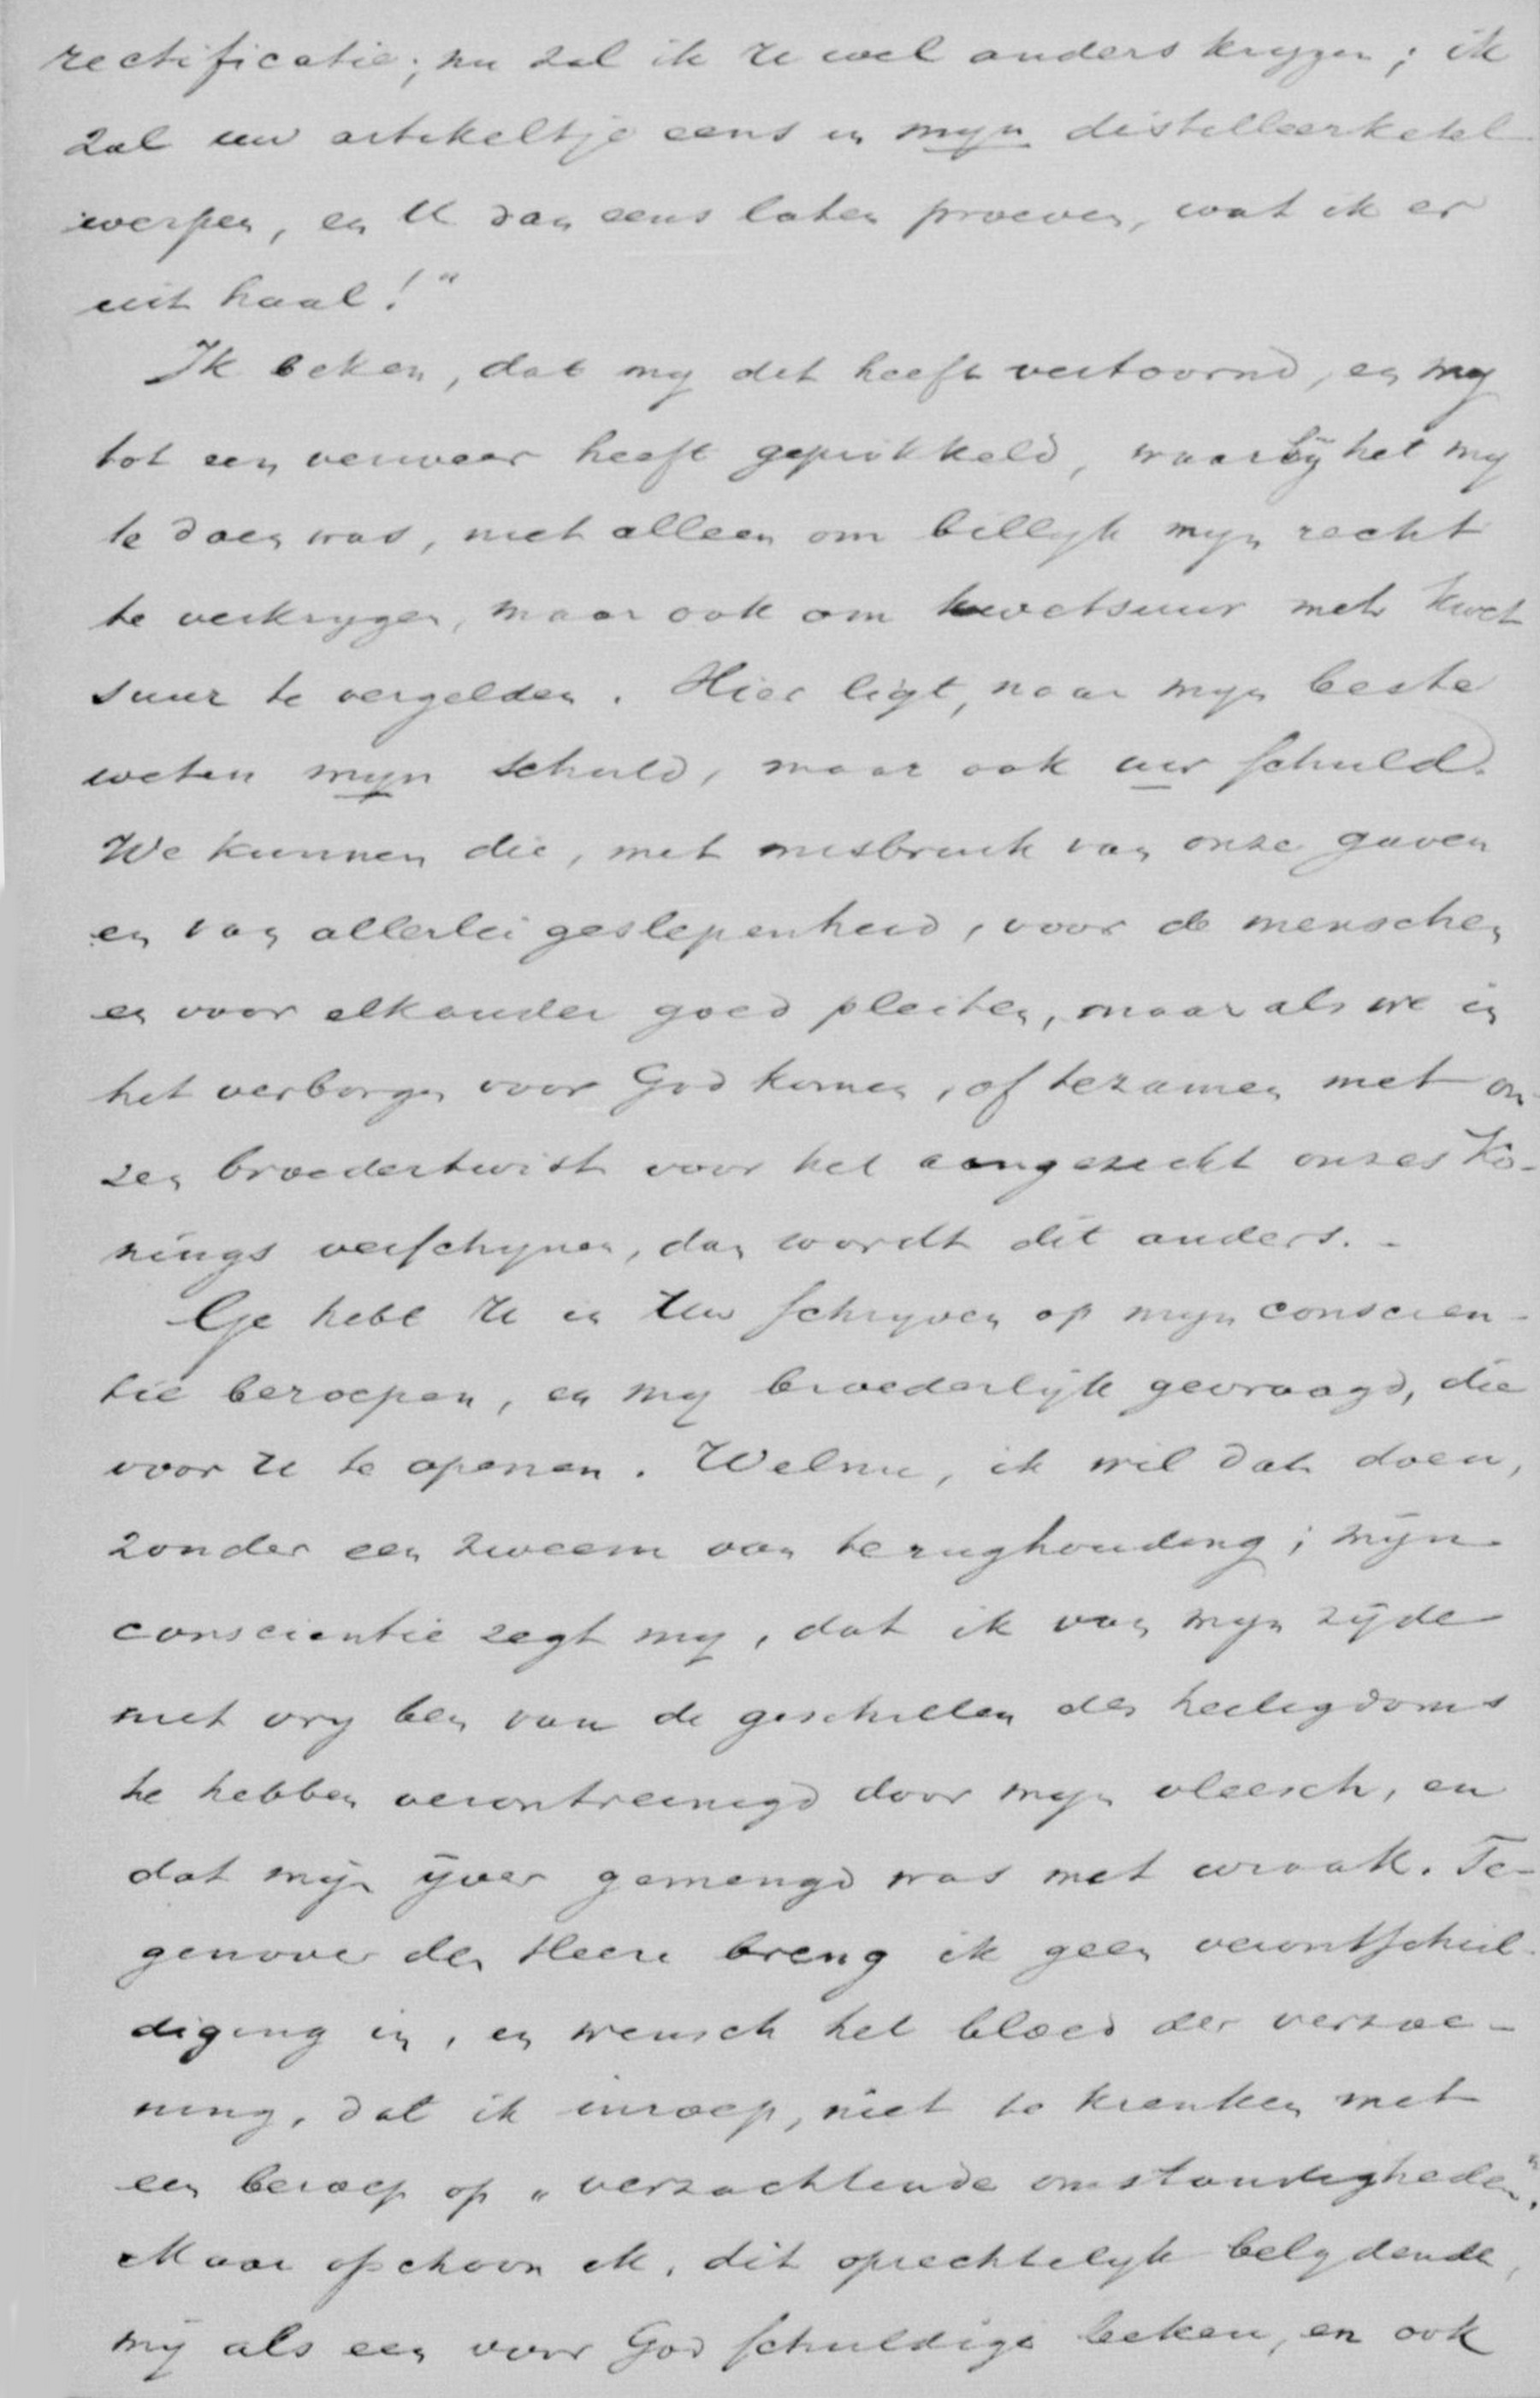 rectificatie; nu zal ik U wel anders krygen; ik
zal uw artikeltje eens in myn distilleerketel
werpen, en U dan eens laten proeven, wat ik er
uit haal!"
Ik beken, dat my dit heeft vertoornd, en my
tot een verweer heeft geprikkeld, waarby het my
te doen was, niet alleen om billyk myn recht
te verkrygen, maar ook om kwetsuur met kwet
suur te vergelden. Hier ligt, naar myn beste
weten myn schuld, maar ook uw schuld.
We kunnen die, met misbruik van onze gaven
en van allerlei geslepenheid, voor de menschen
en voor elkander goed pleiten, maar als we in
het verborgen voor God komen, of tezamen met on-
zen broedertwist voor het aangezicht onzes Ko-
nings verschynen, dan wordt dit anders. -
Ge hebt U in Uw schryven op myn conscien-
tie beroepen, en my broederlyk gevraagd, die
voor U te openen. Welnu, ik wil dat doen,
zonder een zweem van terughouding; myn
conscientie zegt my, dat ik van myn zyde
niet vry ben van de geschillen des heiligdoms
te hebben verontreinigd door myn vleesch, en
dat myn yver gemengd was met wraak. Te-
genover den Heere breng ik geen verontschul-
diging in, en wensch het bloed der verzoe-
ning, dat ik inroep, niet te krenken met
een beroep op „verzachtende omstandigheden".
Maar ofschoon ik, dit oprechtelyk belydende,
my als een voor God schuldige beken, en ook